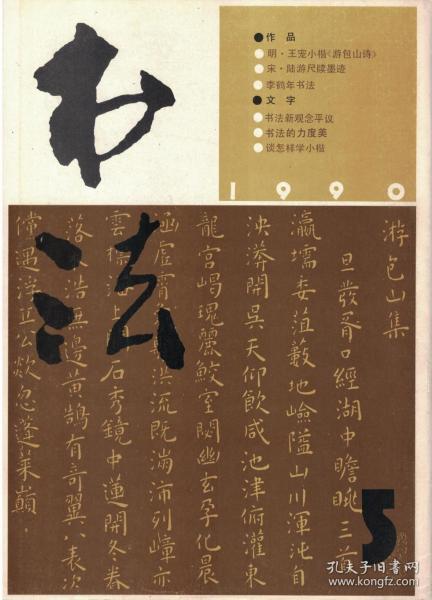 书法
●作品
●明·王宠小楷《游包山诗》
●宋·陆游尺牍墨迹
●李鹤年书法
●文字
●书法新观念平议
●书法的力度美
●谈怎样学小楷
1990
游包山集
旦發胥口經湖中瞻眺三首
瀛壖委菹藪地嶮隘山川渾沌自
泱漭開吳天仰飲咸池津俯灌東
龍宮崵瑰麗鮫室閟幽玄孕化晨
涵虛霄 洪流既滿沛列嶂亦
雲標海上 石秀鏡中蓮開冬眷
落 浩無邊黃鵠有奇翼八表次
儻遇浮丘公欻忽蓬萊巔
5
孔夫子旧书网
www.kongfz.com